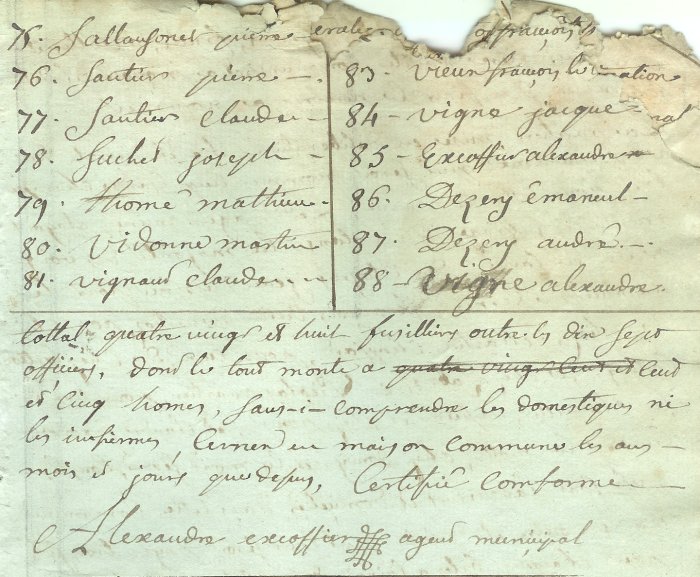 75. Sallansonet pierre
76. Sautier pierre
77. Sautier claude
78. Suchet joseph
79. thomé mathieu
80. vidonne martin
81. vignaud claude
83. vieux françois
84 - vigne jacque
85 - Excoffier alexandre
86. Dezery émanuel
87. Dezery andré
88 - vigne alexandre
tottal quatre vingt et huit fusilliers outre les dix sept
officiers, dont le tout monte a quatre vingt cent et cent
et cinq homes, sans-i-comprendre les domestiques ni
les infiermes, cerner en maison commune les ans
mois et jours que depus, Certifié conforme
Alexandre excoffier agent municipal